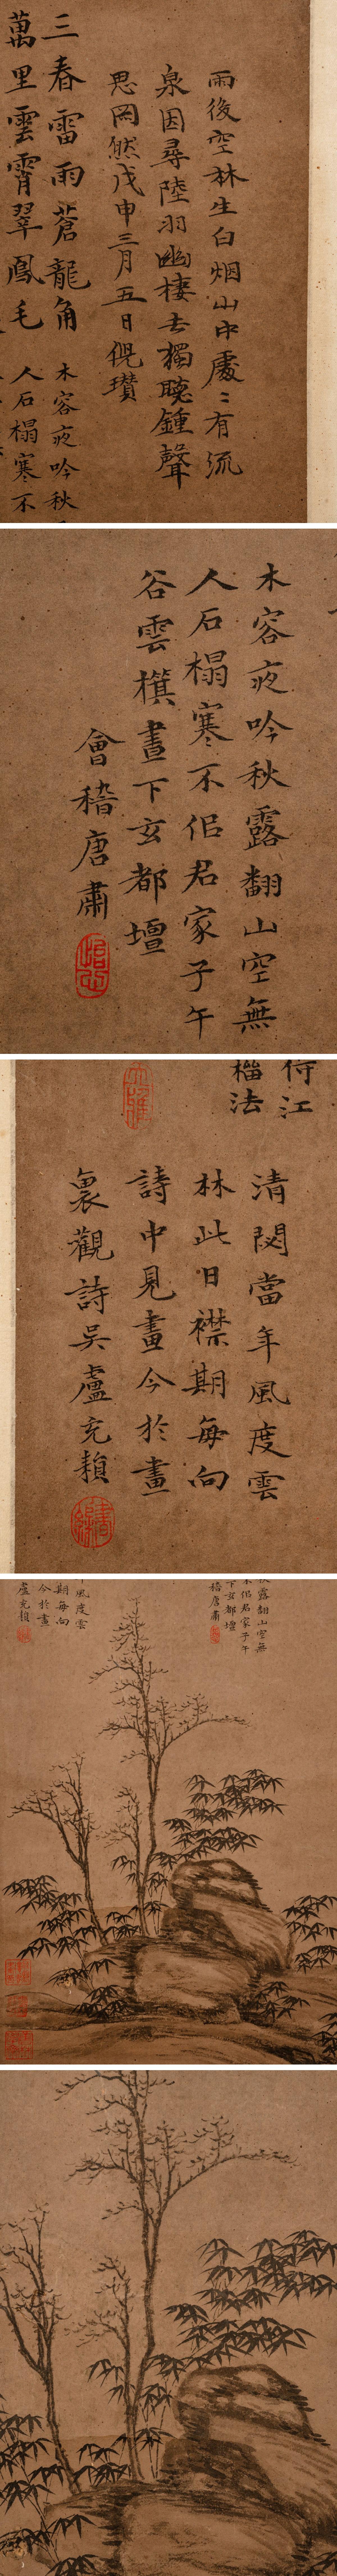 雨後空林生白烟山中處〻有流
泉因尋陸羽幽棲去獨聽鍾聲
思罔然戊申三月五日倪瓚
三春雷雨蒼龍角
萬里雲霄翠鳳毛
木客夜吟秋
人石榻寒不
木客夜吟秋露翻山空無
人石榻寒不侣君家子午
谷雲横晝下玄都壇
會稽唐肅
江
榴法
清閟當年風度雲
林此日襟期每向
詩中見畫今於畫
裏觀詩吴盧充頛
秋露翻山空無
不侣君家子午
下玄都壇
稽唐肅
風度雲
期每向
今於畫
盧充頛